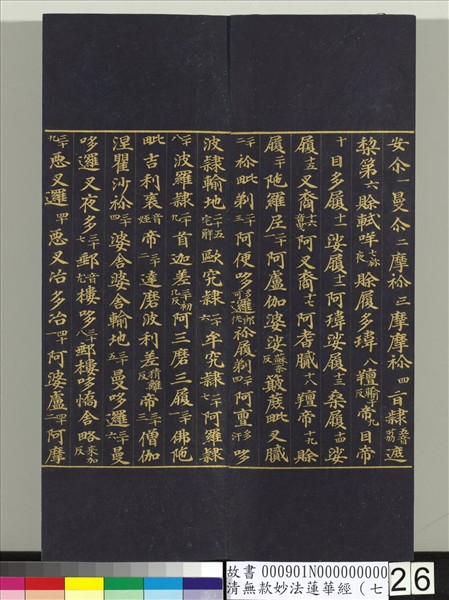 安尒一曼尒二摩祢三摩摩祢四旨隷遮
棃第六賒䩭咩七賒履多瑋八羶帝九目帝
十目多履十一娑履十二阿瑋娑履十三桑履十四娑
履十五叉裔十六阿叉裔十七阿耆膩十八羶帝十九賒
履二十陁羅尼二十一阿盧伽婆娑蘇奈反簸蔗毗叉膩
二十二祢毗剃二十三阿便哆邏祢履剃二十四阿亶哆
波隷輸地二十五歐究隷二十六牟究隷二十七阿羅隷
二十八波羅隷二十九首迦差三十初几反阿三磨三履三十一佛陁
毗吉利袠音姪帝三十二達磨波利差猜離反帝三十三僧伽
涅瞿沙祢三十四婆舍婆舍輸地三十五曼哆邏三十六曼
哆邏叉夜多三十七郵樓哆三十八郵樓哆憍舍略來加反
三十九惡叉邏四十惡叉冶多冶四十一阿婆盧四十二阿摩
故書 000901N000000000
清無款妙法蓮華經（七
26